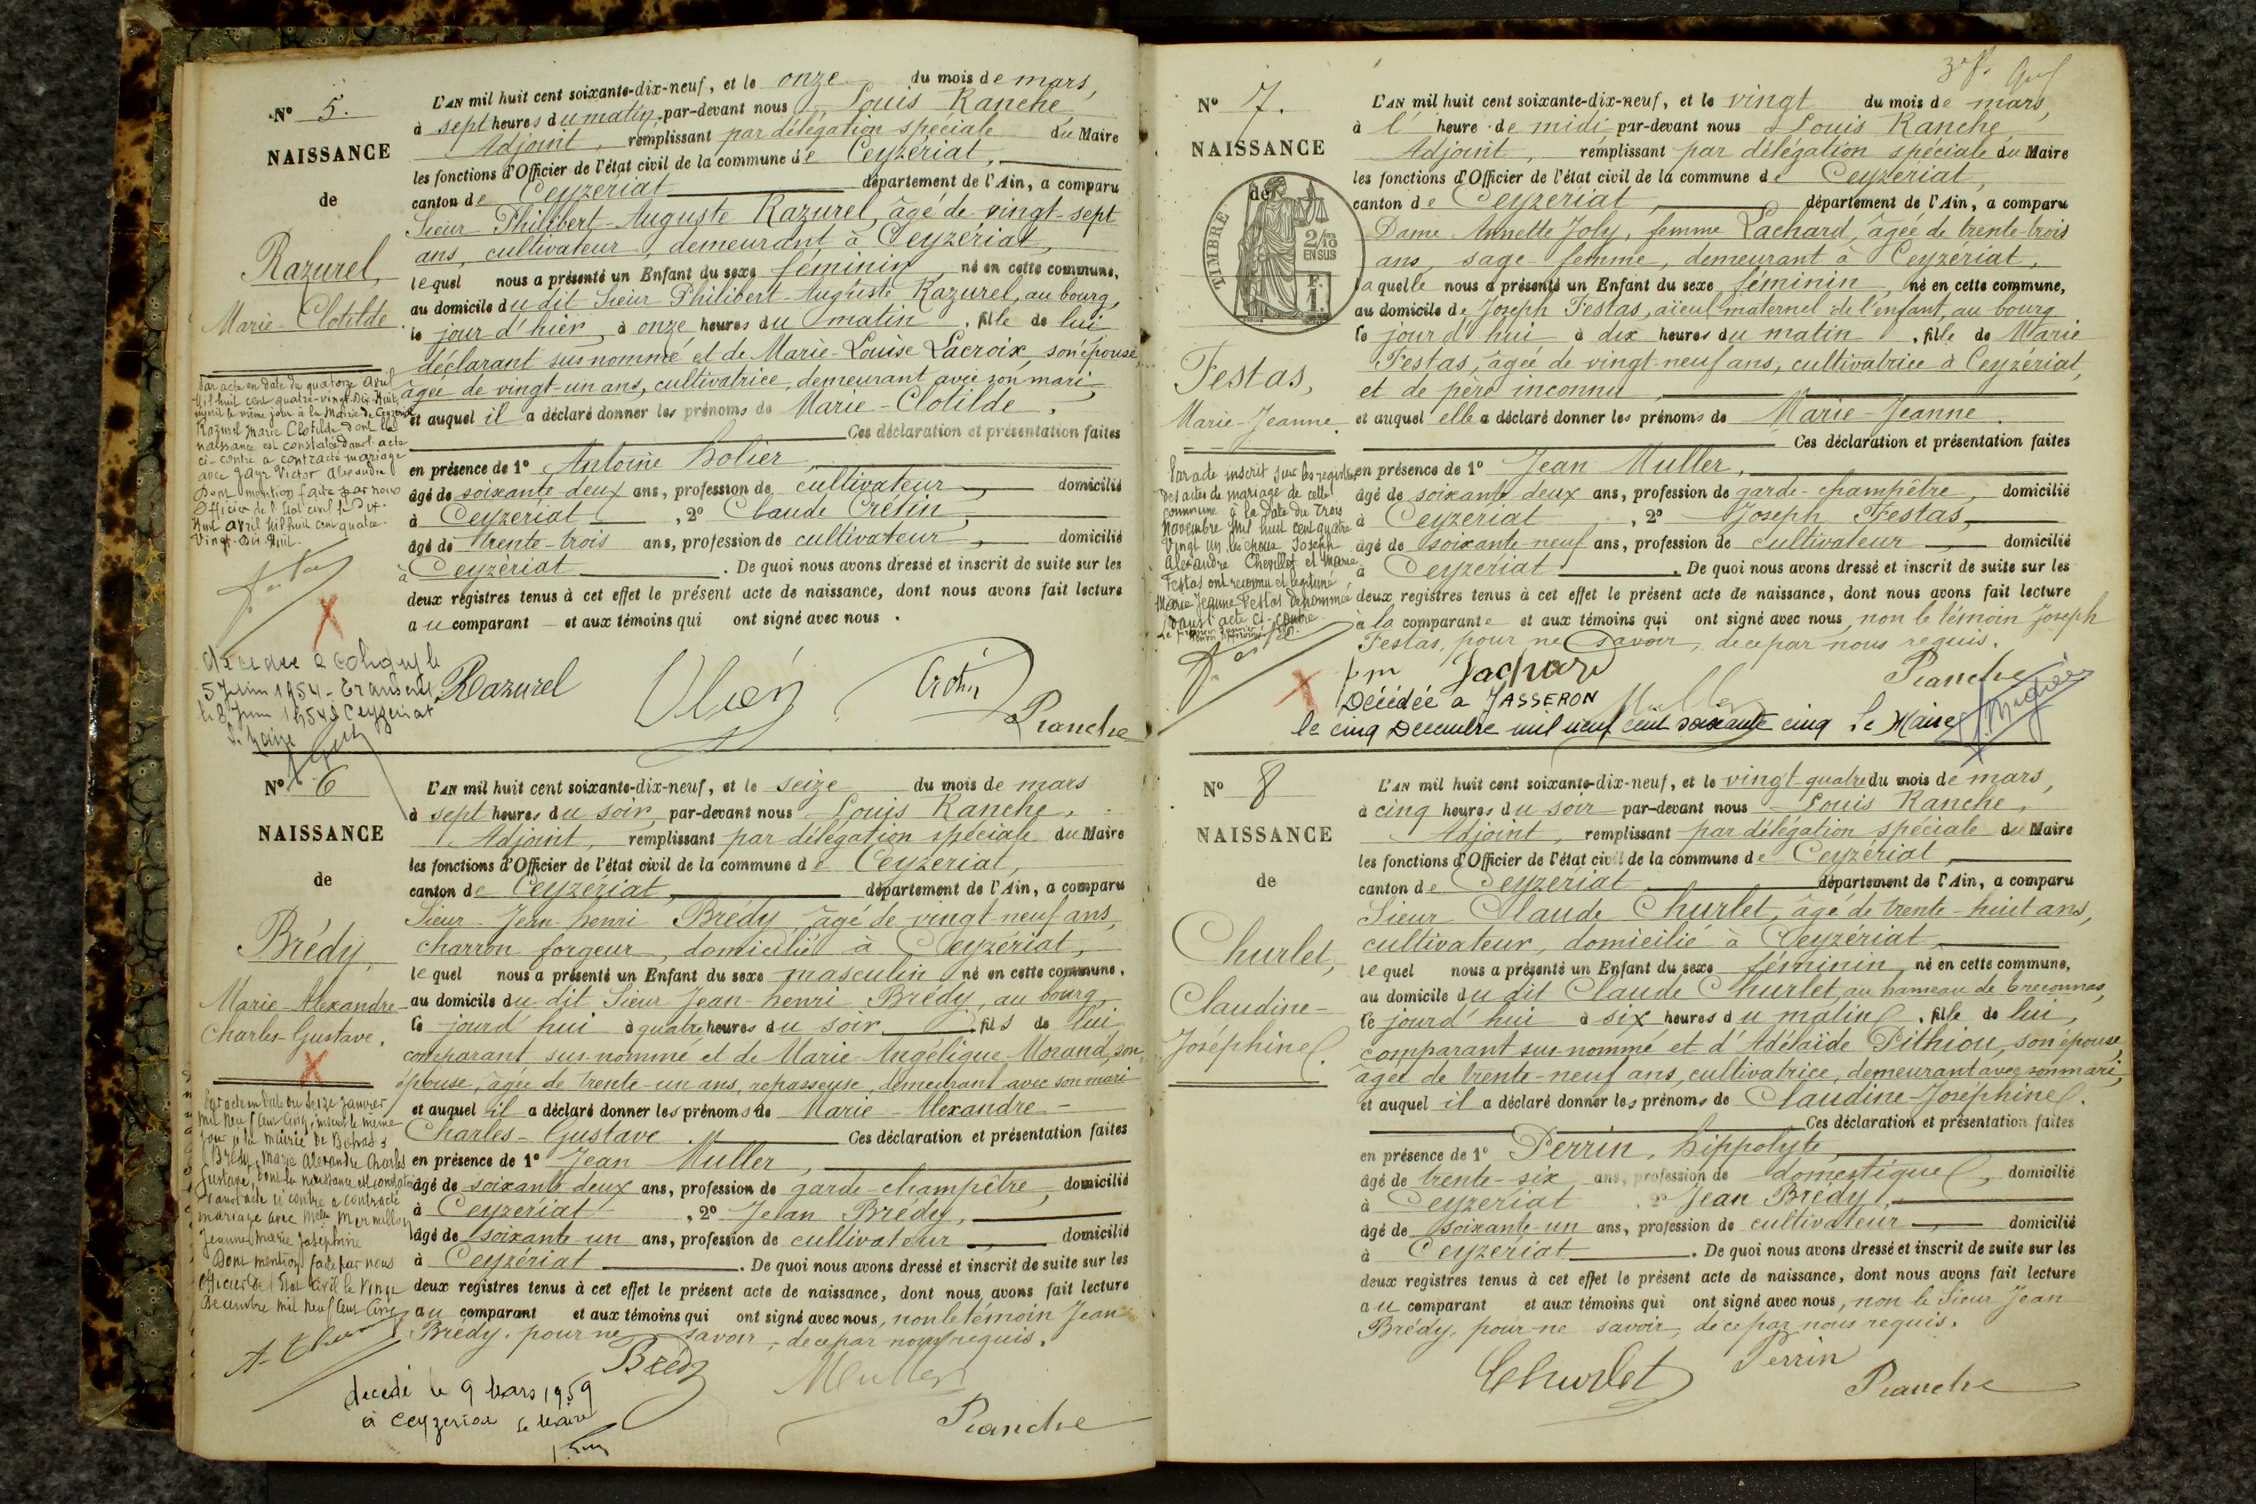 Nº 5.
NAISSANCE
de
Razurel,
Marie-Clotilde
L'AN mil huit cent soixante-dix-neuf, et le onze du mois de mars,
à sept heures du matin, par-devant nous Louis Ranche
Adjoint, remplissant par délégation spéciale du Maire
les fonctions d'Officier de l'état civil de la commune de Ceyzériat,
canton de Ceyzériat département de l'Ain, a comparu
Sieur Philibert-Auguste Razurel, âgé de vingt-sept
ans, cultivateur, demeurant à Ceyzériat,
lequel nous a présenté un Enfant du sexe féminin, né en cette commune,
au domicile du dit Sieur Philibert-Auguste Razurel, au bourg,
le jour d'hier à onze heures du matin, fille de lui
déclarant sus nommé et de Marie-Louise Lacroix, son épouse
âgée de vingt-un ans, cultivatrice, demeurant avec son mari
et auquel il a déclaré donner les prénoms de Marie-Clotilde.
Ces déclaration et présentation faites
en présence de 1º Antoine
âgé de soixante deux ans, profession de cultivateur, domicilié
à Ceyzériat, 2º Claude Crétin,
âgé de trente-trois ans, profession de cultivateur, domicilié
à Ceyzériat. De quoi nous avons dressé et inscrit de suite sur les
deux registres tenus à cet effet le présent acte de naissance, dont nous avons fait lecture
au comparant et aux témoins qui ont signé avec nous.
Par acte en date du quatorze avril
Mil huit cent quatre-vingt-Dix-Huit,
inscrit le même jour à la Mairie de Ceyzériat
Razurel Marie Clotilde dont la
naissance est constatée dans l'acte
ci-contre a contracté mariage
avec Jayr Victor Alexandre
Dont mention faite par nous
Officier de l'Etat civil le Dix
Huit avril Mil huit cent quatre-
Vingt-Dix-Huit.
décédée a Coligny le
5 Juin 1954 - Transcrit
le 8 Juin 1954 à Ceyzériat
Le Maire
Razurel
Crétin
Ranche
Nº 6
NAISSANCE
de
Brédy,
Marie-Alexandre-
Charles-Gustave.
L'AN mil huit cent soixante-dix-neuf, et le seize du mois de mars
à sept heures du soir, par-devant nous Louis Ranche,
Adjoint, remplissant par délégation spéciale du Maire
les fonctions d'Officier de l'état civil de la commune de Ceyzériat,
canton de Ceyzériat, département de l'Ain, a comparu
Sieur Jean-henri Brédy, âgé de vingt neuf ans,
charron forgeur, domicilié à Ceyzériat,
lequel nous a présenté un Enfant du sexe masculin né en cette commune,
au domicile du dit Sieur Jean-henri Brédy, au bourg,
le jourd'hui à quatre heures du soir, fils de lui
comparant sus-nommé et de Marie-Angélique Morand, son
épouse, âgée de trente-un ans, repasseuse, demeurant avec son mari
et auquel il a déclaré donner les prénoms de Marie-Alexandre-
Charles-Gustave. Ces déclaration et présentation faites
en présence de 1º Jean Muller,
âgé de soixante deux ans, profession de garde-champêtre, domicilié
à Ceyzériat, 2º Jean Brédy,
âgé de soixante-un ans, profession de cultivateur, domicilié
à Ceyzériat. De quoi nous avons dressé et inscrit de suite sur les
deux registres tenus à cet effet le présent acte de naissance, dont nous avons fait lecture
au comparant et aux témoins qui ont signé avec nous, non le témoin Jean
Brédy, pour ne savoir, de ce par nous requis.
Par acte en date du Seize Janvier
Mil Neuf Cent Cinq, inscrit le même
jour à la mairie de Bohas
Brédy, Marie Alexandre Charles
Gustave, dont la naissance est constatée
dans l'acte ci contre a contracté
mariage avec Melle Mermillon
Jeanne Marie Joséphine
Dont mention faite par nous
Officier de l'Etat Civil le Vingt
Décembre Mil Neuf Cent Cinq
Brédy
Muller
Ranche
décédé le 9 Mars 1959
à Ceyzériat Le Maire
Nº 7.
NAISSANCE
de
TIMBRE
2/10
EN SUS
F.
1.
Festas,
Marie-Jeanne.
L'AN mil huit cent soixante-dix-neuf, et le vingt du mois de mars,
à l'heure de midi par-devant nous Louis Ranche,
Adjoint, remplissant par délégation spéciale du Maire
les fonctions d'Officier de l'état civil de la commune de Ceyzériat,
canton de Ceyzériat, département de l'Ain, a comparu
Dame Annette Joly, femme Lachard, âgée de trente-trois
ans, sage-femme, demeurant à Ceyzériat,
laquelle nous a présenté un Enfant du sexe féminin, né en cette commune,
au domicile de Joseph Festas, aïeul maternel de l'enfant, au bourg
le jourd'hui à dix heures du matin, fille de Marie
Festas, âgée de vingt-neuf ans, cultivatrice à Ceyzériat,
et de père inconnu
et auquel elle a déclaré donner les prénoms de Marie-Jeanne.
Ces déclaration et présentation faites
en présence de 1º Jean Muller,
âgé de soixante deux ans, profession de garde-champêtre, domicilié
à Ceyzériat, 2º Joseph Festas,
âgé de soixante neuf ans, profession de cultivateur, domicilié
à Ceyzériat. De quoi nous avons dressé et inscrit de suite sur les
deux registres tenus à cet effet le présent acte de naissance, dont nous avons fait lecture
à la comparante et aux témoins qui ont signé avec nous, non le témoin Joseph
Festas, pour ne savoir, de ce par nous requis.
Par acte inscrit sur les registres
des actes de mariage de cette
commune à la date du Trois
Novembre Mil huit cent quatre
Vingt un les époux Joseph
Alexandre Chevillet et Marie
Festas ont reconnu et légitimé
Marie Jeanne Festas dénommée
dans l'acte ci-contre
Ranche
Décédée a JASSERON
le cinq Decembre mil neuf cent soixante cinq Le Maire
Nº 8
NAISSANCE
de
Churlet,
Claudine-
Joséphine.
L'AN mil huit cent soixante-dix-neuf, et le vingt-quatre du mois de mars,
à cinq heures du soir par-devant nous Louis Ranche,
Adjoint, remplissant par délégation spéciale du Maire
les fonctions d'Officier de l'état civil de la commune de Ceyzériat,
canton de Ceyzériat département de l'Ain, a comparu
Sieur Claude Churlet, âgé de trente-huit ans,
cultivateur, domicilié à Ceyzériat,
lequel nous a présenté un Enfant du sexe féminin, né en cette commune,
au domicile du dit Claude Churlet, au hameau de
le jourd'hui à six heures du matin, fille de lui,
comparant sus nommé et d'Adélaïde Pithiou, son épouse,
âgée de trente-neuf ans, cultivatrice, demeurant avec son mari,
et auquel il a déclaré donner les prénoms de Claudine-Joséphine.
Ces déclaration et présentation faites
en présence de 1º Perrin, hippolyte,
âgé de trente-six ans, profession de domestique, domicilié
à Ceyzériat 2º Jean Brédy,
âgé de soixante-un ans, profession de cultivateur, domicilié
à Ceyzériat. De quoi nous avons dressé et inscrit de suite sur les
deux registres tenus à cet effet le présent acte de naissance, dont nous avons fait lecture
au comparant et aux témoins qui ont signé avec nous, non le Sieur Jean
Brédy, pour ne savoir, de ce par nous requis.
Churlet
Perrin
Ranche